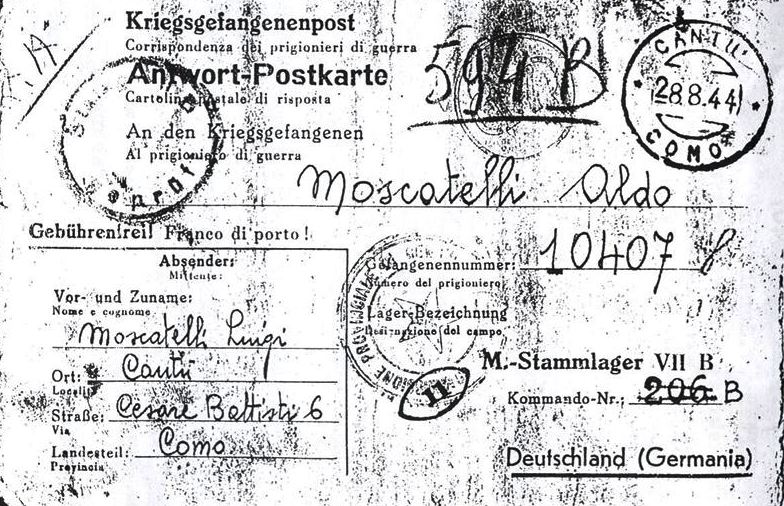 Kriegsgefangenenpost
Corrispondenza dei prigionieri di guerra
Antwort-Postkarte
Cartolina postale di risposta
An den Kriegsgefangenen
Al prigioniero di guerra
594 B
CANTU'
28.8.44
COMO
Moscatelli Aldo
Gebührenfrei! Franco di porto!
Absender:
Mittente:
Vor- und Zuname:
Nome e cognome
Moscatelli Luigi
Ort: Cantù
Località
Straße: Cesare Battisti 6
Via
Landesteil: Como
Provincia
Gefangenennummer: 10407
Numero del prigioniero
Lager-Bezeichnung
Designazione del campo
11
M.-Stammlager VII B
Kommando-Nr.: 206 B
Deutschland (Germania)